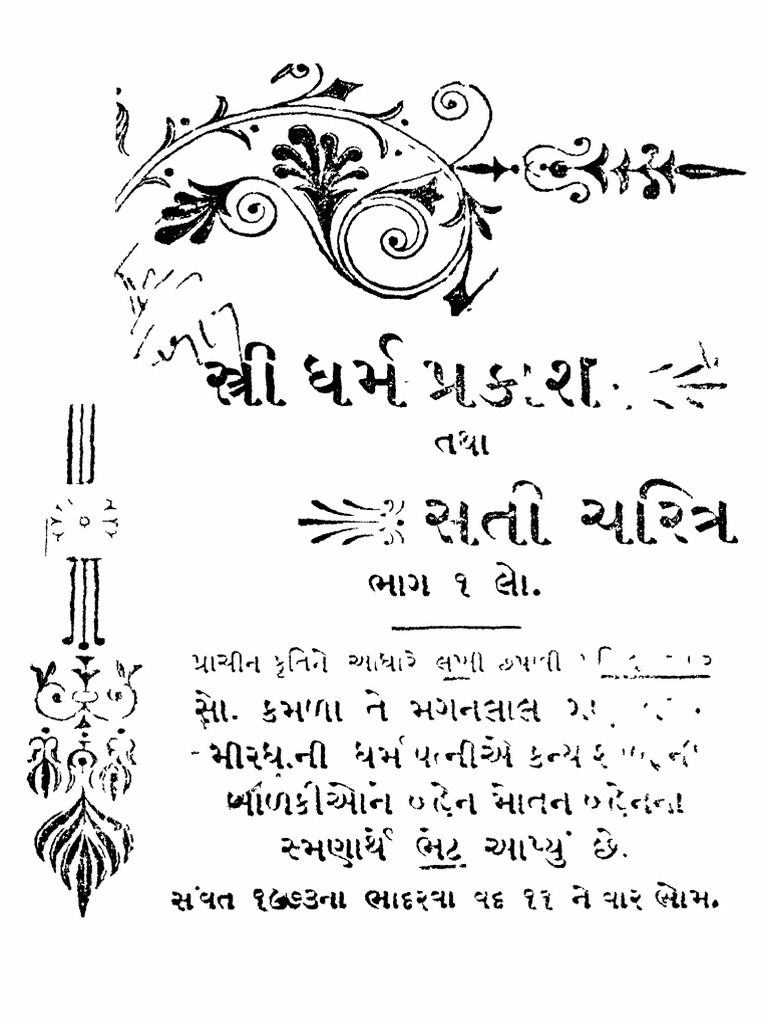 સ્ત્રી ધર્મ પ્રકાશ
તથા
સતી ચરિત્ર
ભાગ ૧ લો.
પ્રાચીન કૃતિને આધારે લખી છપાવી
સૌ. કમળા તે મગનલાલ
ધર્મ પત્નીએ
બાળકીઓને બ્હેન મોતન બ્હેનના
સ્મણાર્થે ભેટ આપ્યું છે.
સંવત ૧૯૭૩ના ભાદરવા વદ ૧૧ ને વાર ભોમ.